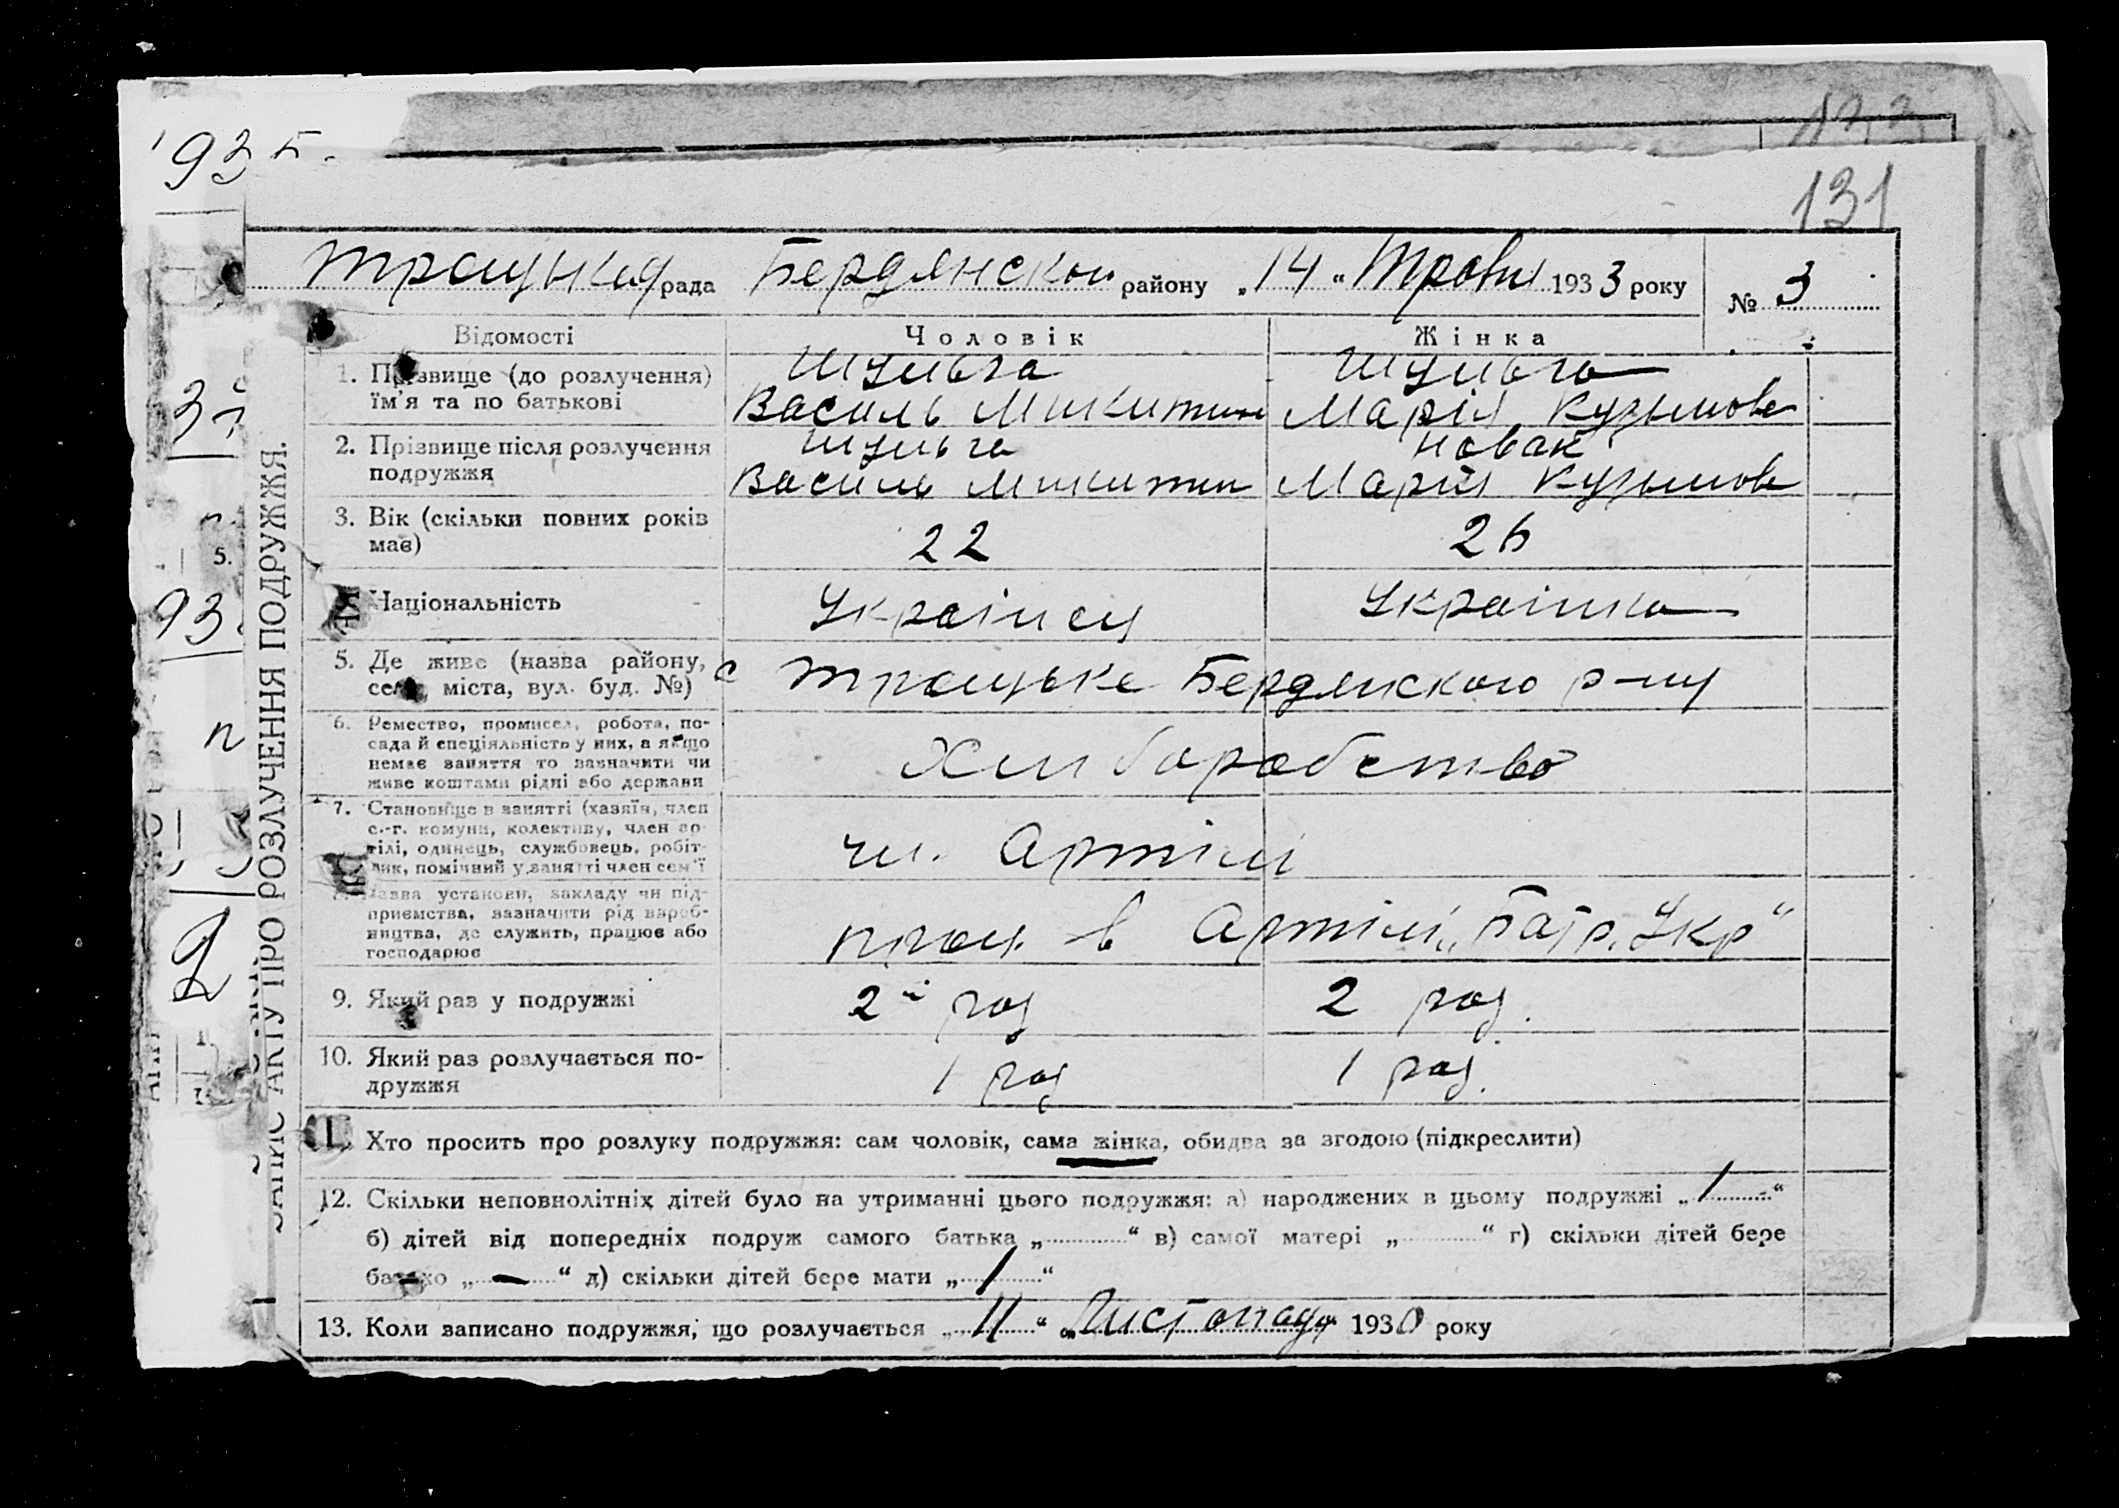 193 5.
133
131
Троцька рада Бердянскои району „14“ Травня 1933 року № 3
Відомості Чоловік Жінка
1. Прізвище (до розлучення) їм'я та по батькові
Шульга Шульга
Василь Микитин Марія Кузьмовн
2. Прізвище після розлучення подружжя
Шульга Новак
Василь Микитин Марія Кузьмовн
3. Вік (скільки повних років має) 22 26
Національність Українец Українка
5. Де живе (назва району, села, міста, вул. буд. №) с Троцьке Бердянского р-ну
6. Ремество, промисел, робота, посада й спеціяльність у них, а якщо
немає заняття то зазначити чи
живе коштами рідні або держави
Хліборобство
7. Становище в занятті (хазяїн, член
с.-г. комуни, колективу, член ар-
тілі, одинець, службовець, робіт-
ник, помічний у занятті член сем'ї
чл. Артілі
Назва установи, закладу чи під-
приємства, зазначити рід вироб-
ництва, де служить, працює або
господарює
прац в Артілі „Батр. Укр“
9. Який раз у подружжі 2й раз 2 раз.
10. Який раз розлучається по-
дружжя 1 раз 1 раз.
11. Хто просить про розлуку подружжя: сам чоловік, сама жінка, обидва за згодою (підкреслити)
12. Скільки неповнолітніх дітей було на утриманні цього подружжя: а) народжених в цьому подружжі „1“
б) дітей від попередніх подруж самого батька „ “ в) самої матері „ “ г) скільки дітей бере
батько „—“ д) скільки дітей бере мати „1“
13. Коли записано подружжя, що розлучається „11“ „Листопада“ 1930 року
ЗАПИС АКТУ ПРО РОЗЛУЧЕННЯ ПОДРУЖЖЯ.